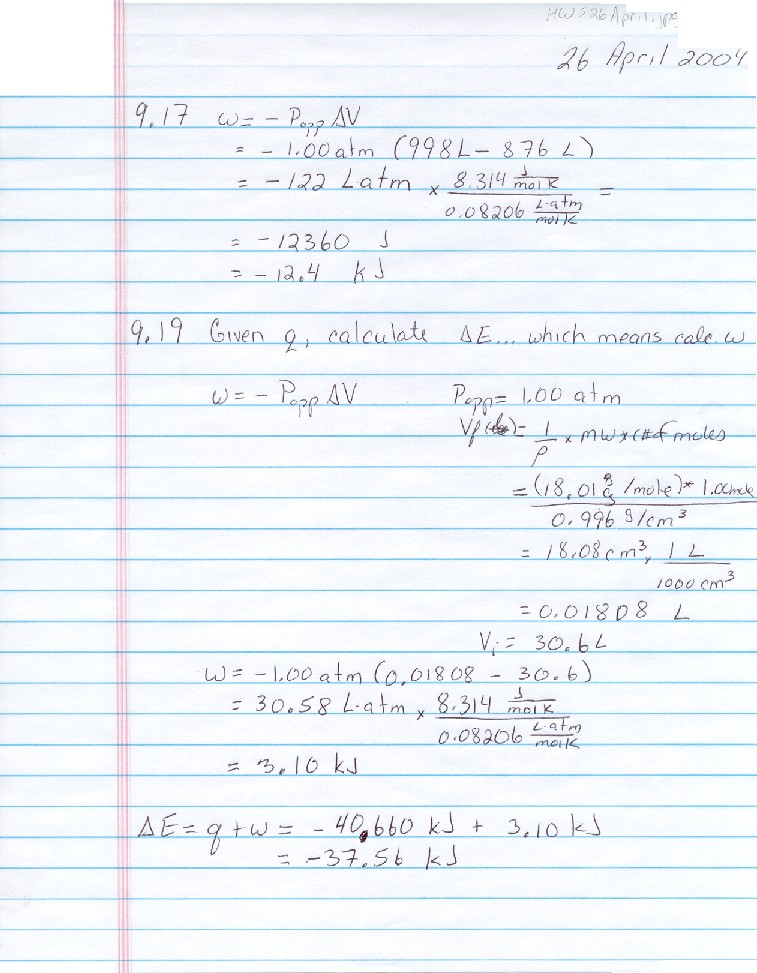 HWS26April.jpg
26 April 2004
9.17 w = - Popp ΔV
= - 1.00 atm (998L - 876 L)
= -122 L·atm × 8.314 J/mol K / 0.08206 L·atm/mol K =
= -12360 J
= -12.4 kJ
9.19 Given q, calculate ΔE... which means calc. w
w = - Popp ΔV Popp = 1.00 atm
Vf = 1/ρ × mw × (# of moles
= (18.01 g/mole) * 1.00 mole / 0.996 g/cm³
= 18.08 cm³, 1 L / 1000 cm³
= 0.01808 L
Vi = 30.6 L
w = -1.00 atm (0.01808 - 30.6)
= 30.58 L·atm × 8.314 J/mol K / 0.08206 L·atm/mol K
= 3.10 kJ
ΔE = q + w = - 40.660 kJ + 3.10 kJ
= -37.56 kJ